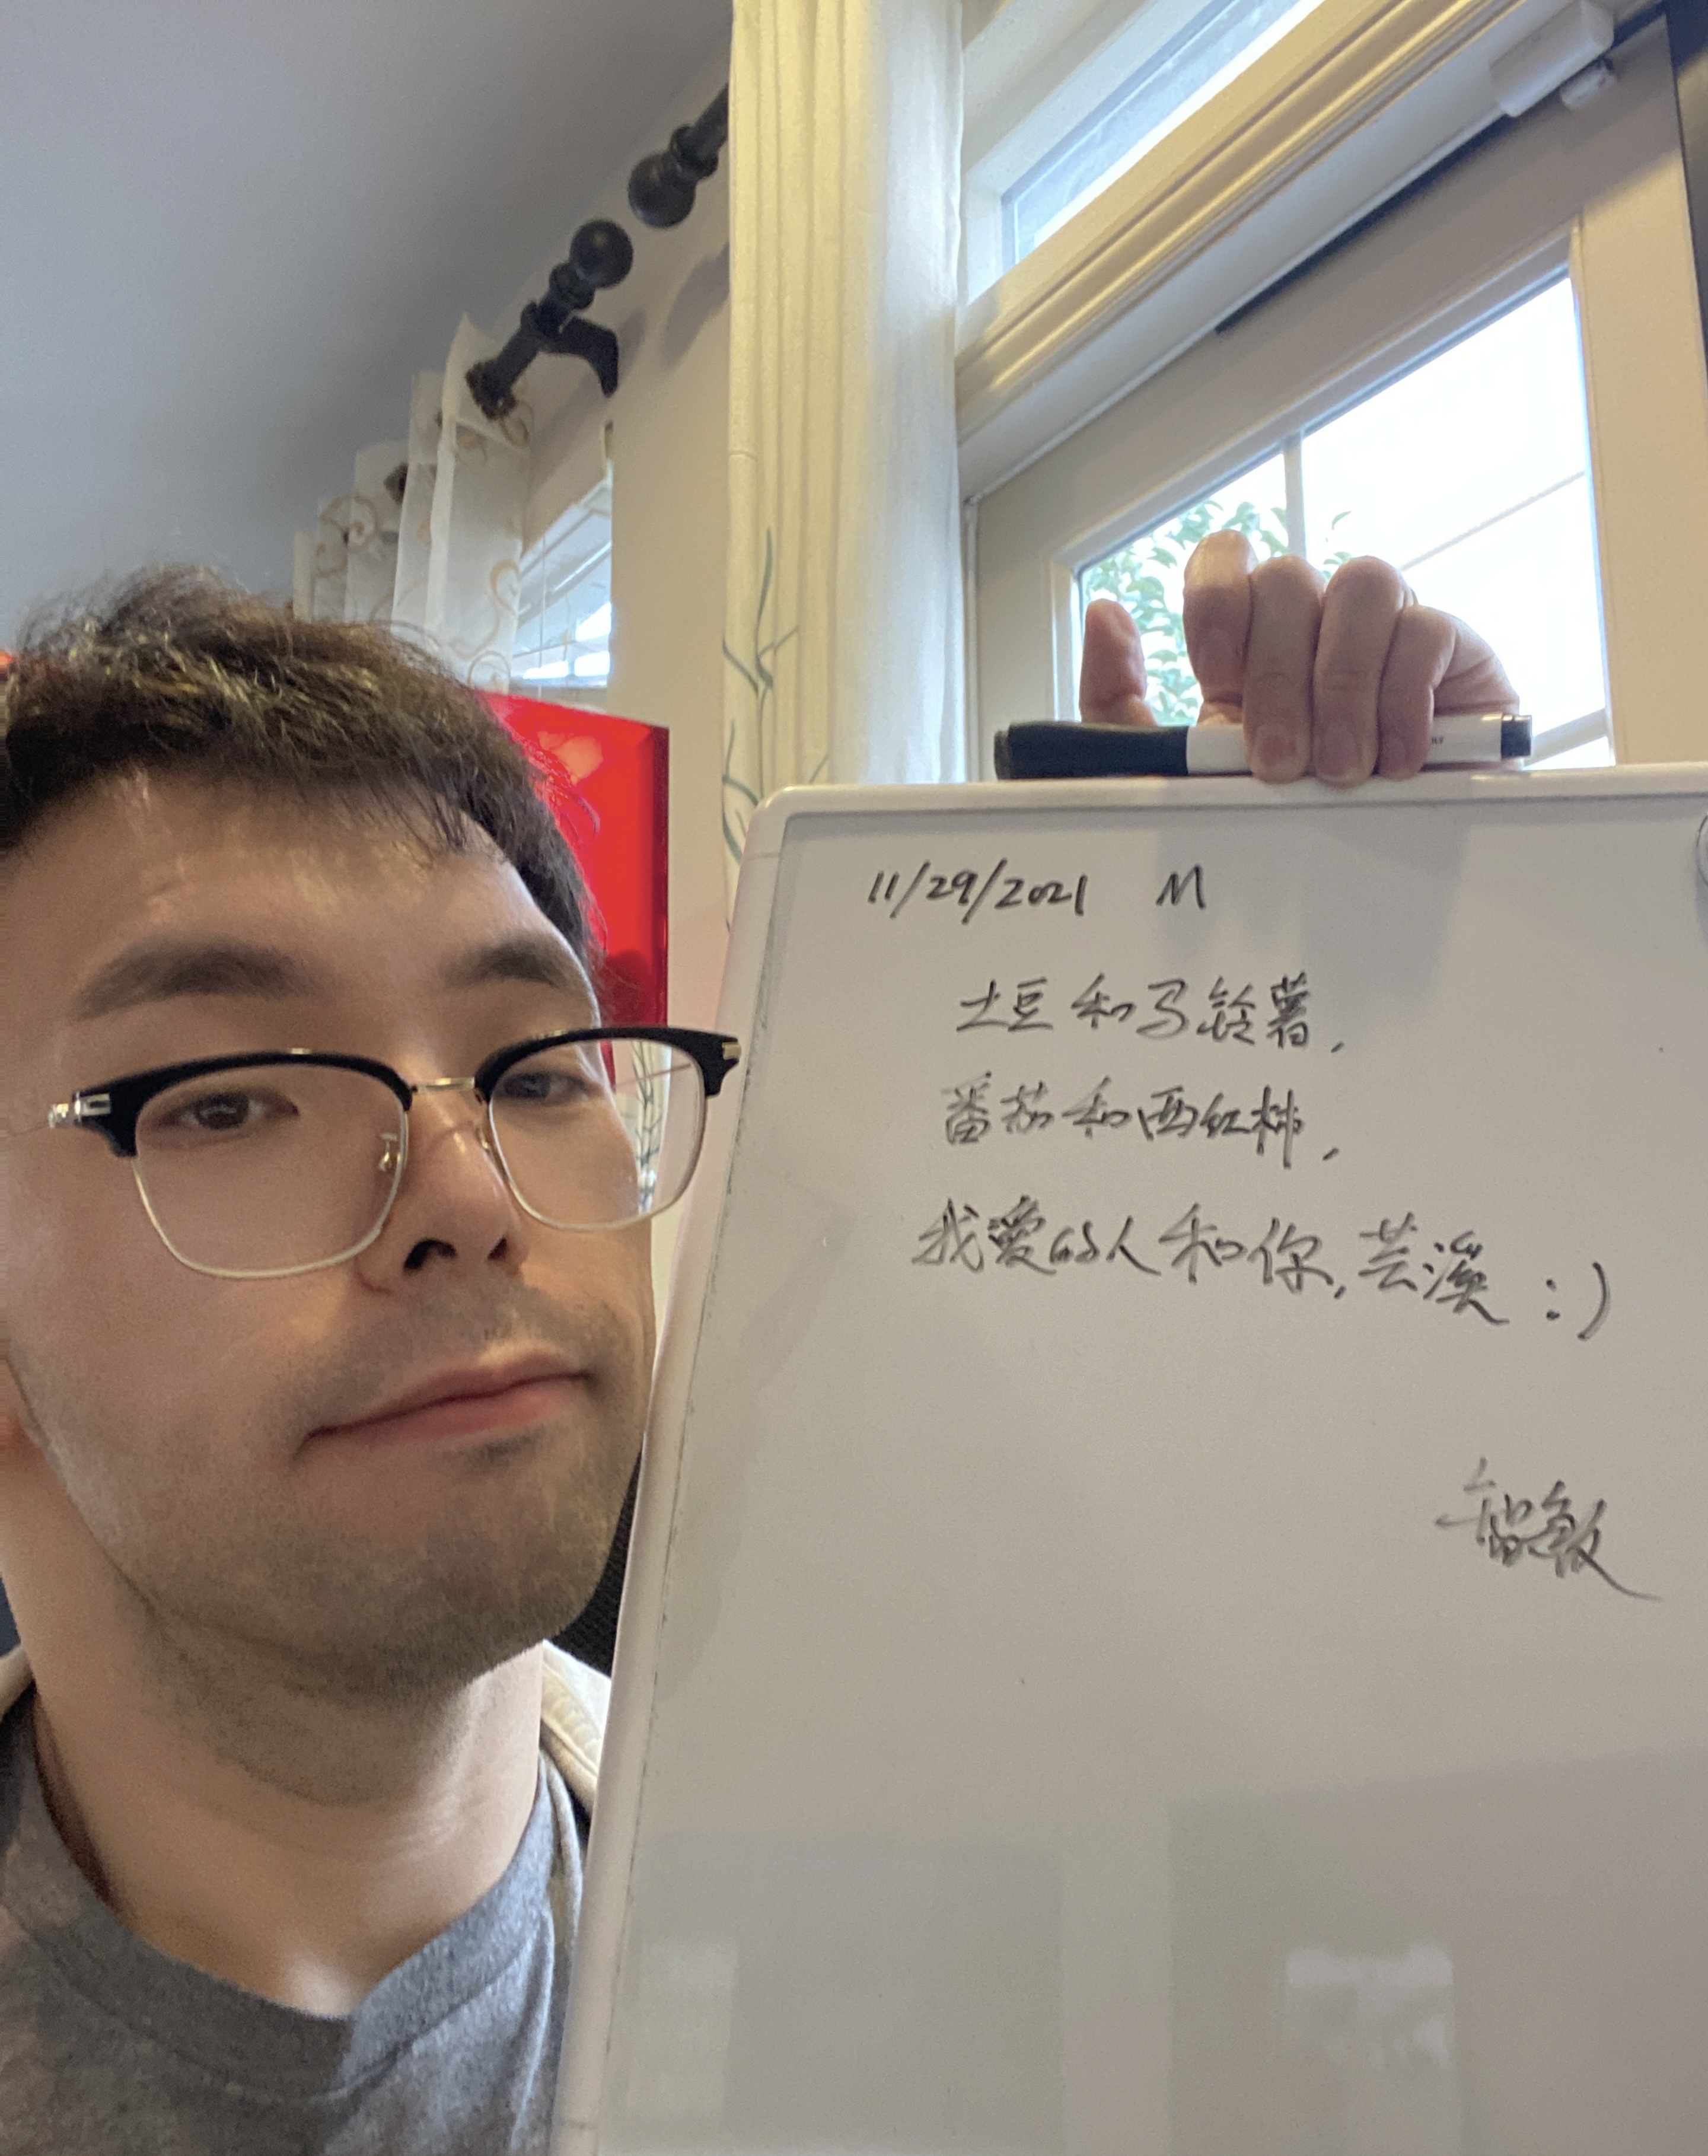 11/29/2021 M
土豆和马铃薯,
番茄和西红柿,
我愛的人和你,芸溪 :)